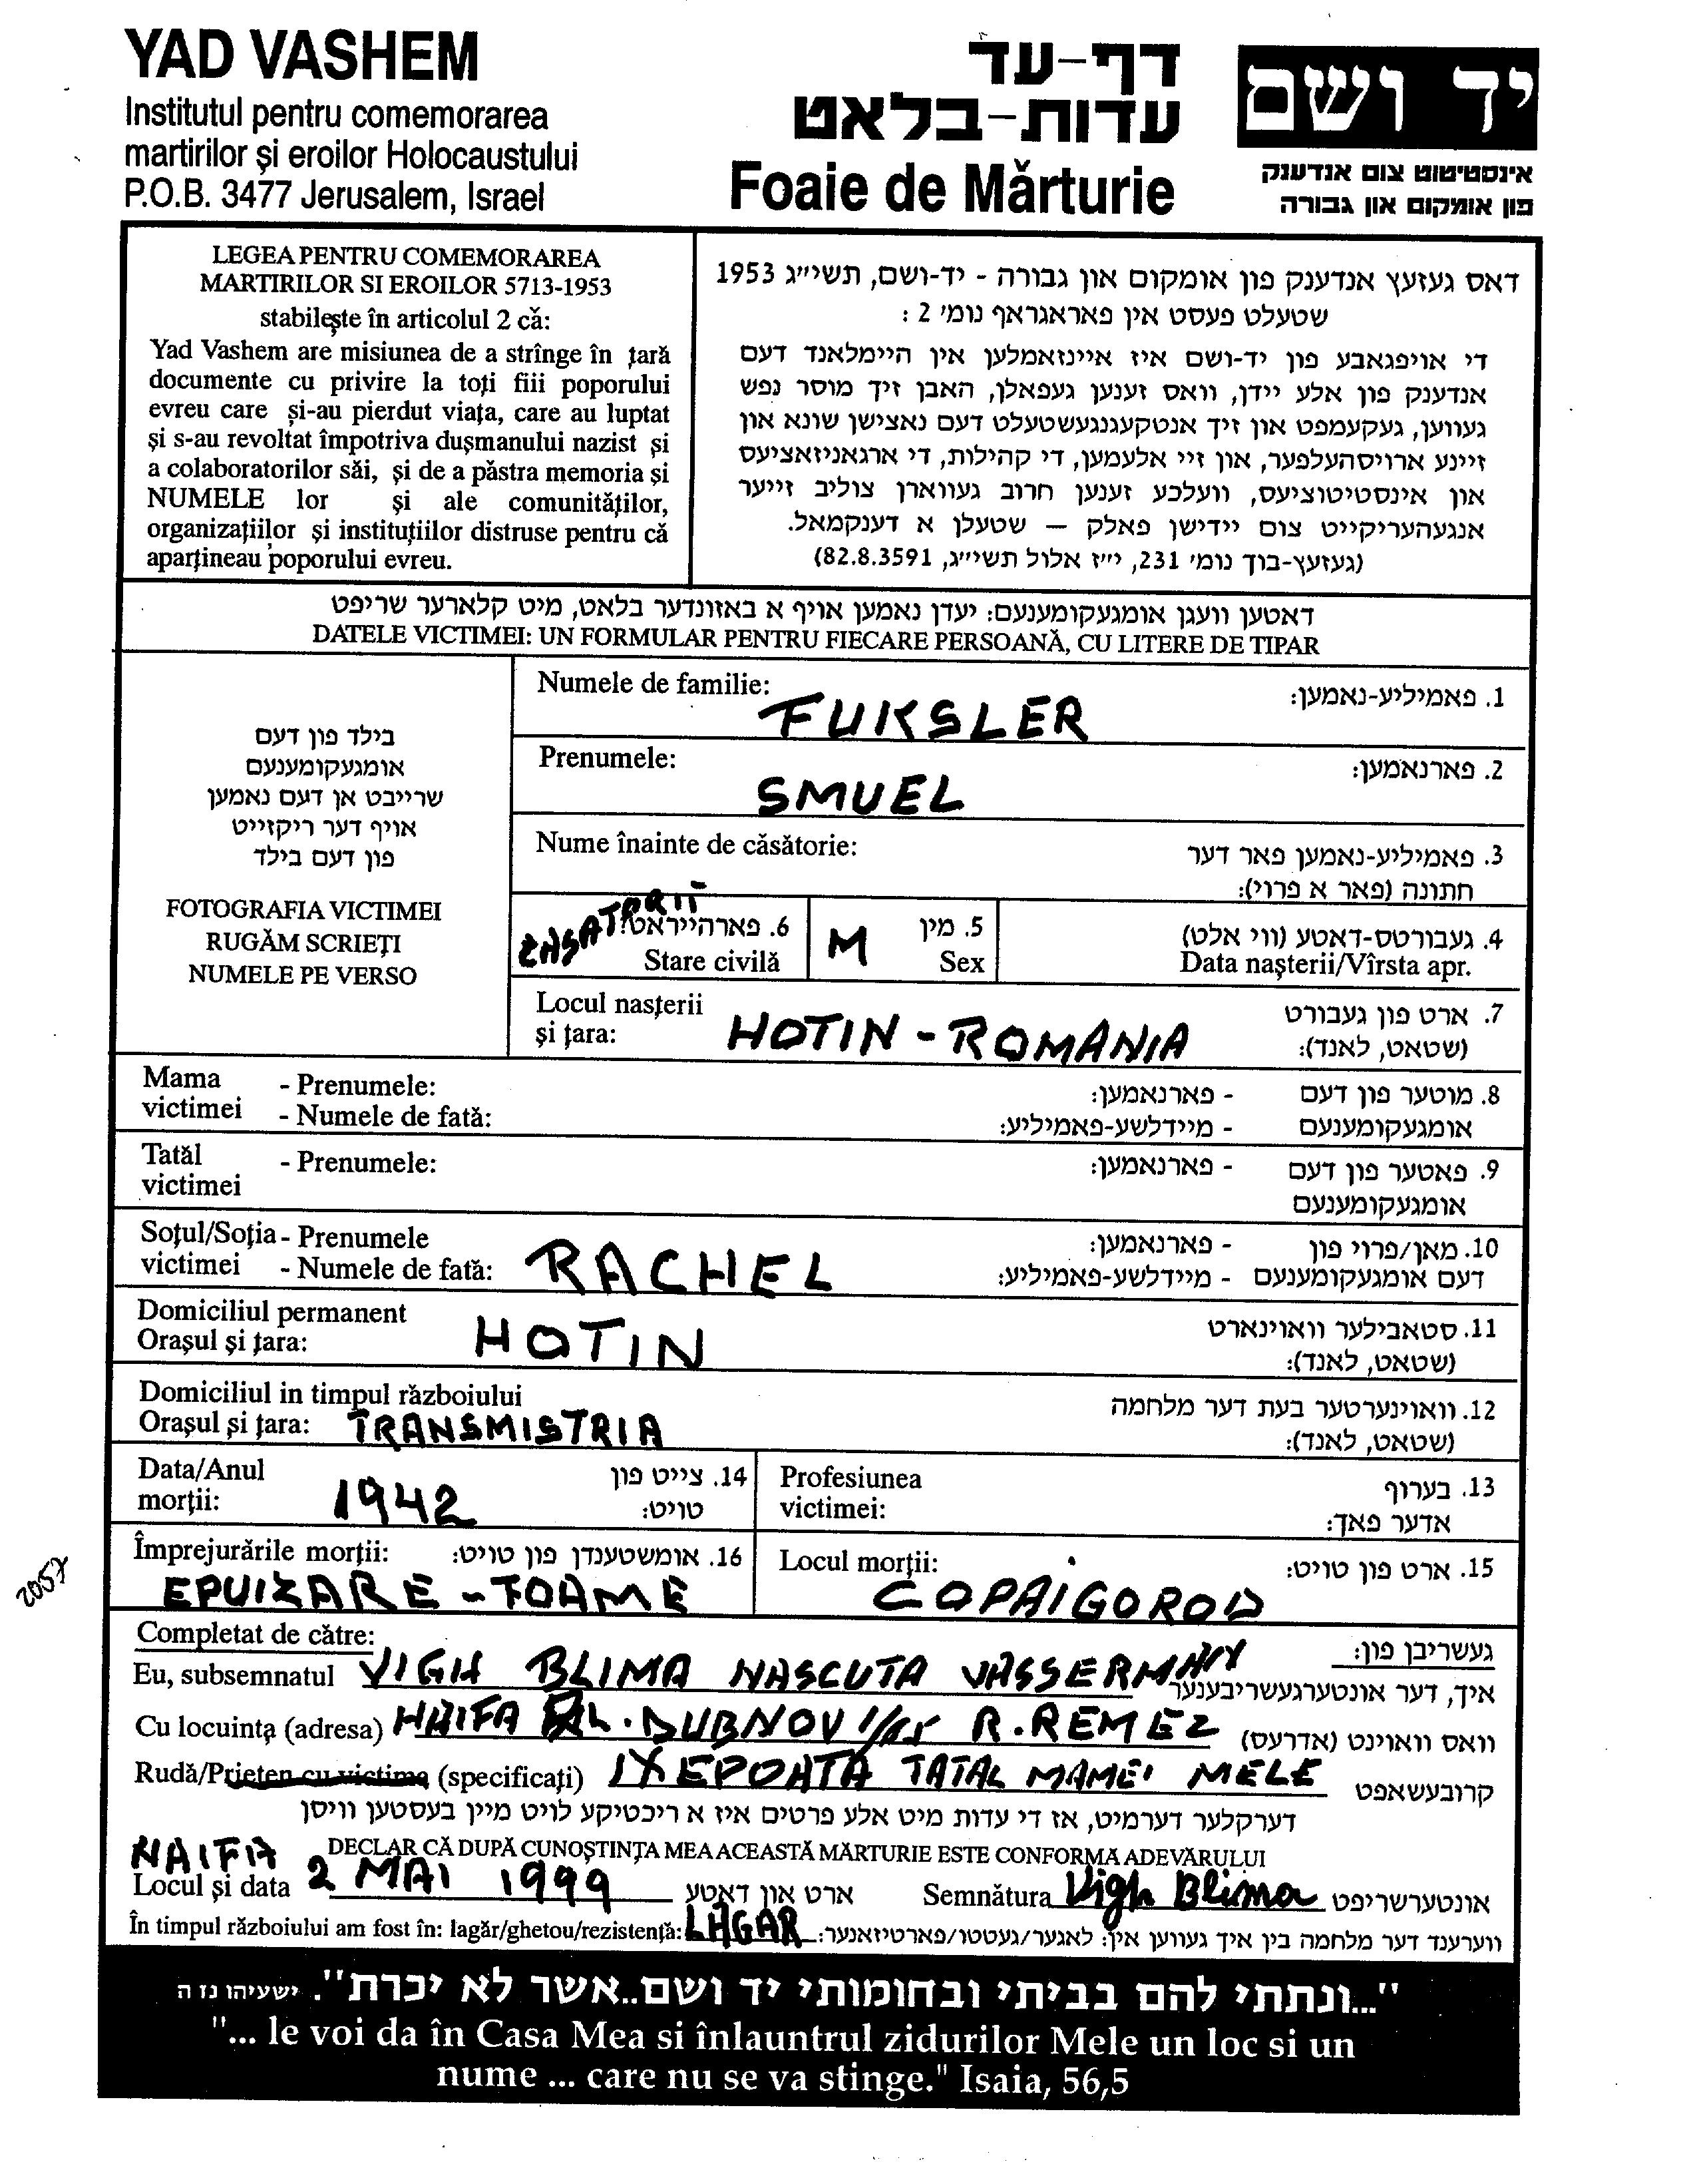 YAD VASHEM
Institutul pentru comemorarea
martirilor şi eroilor Holocaustului
P.O.B. 3477 Jerusalem, Israel
דף-עד
עדות-בלאט
Foaie de Mărturie
יד ושם
אינסטיטוט צום אנדענק
פון אומקום און גבורה
LEGEA PENTRU COMEMORAREA
MARTIRILOR SI EROILOR 5713-1953
stabileşte în articolul 2 că:
Yad Vashem are misiunea de a strînge în ţară
documente cu privire la toţi fiii poporului
evreu care şi-au pierdut viaţa, care au luptat
şi s-au revoltat împotriva duşmanului nazist şi
a colaboratorilor săi, şi de a păstra memoria şi
NUMELE lor şi ale comunităţilor,
organizaţiilor şi instituţiilor distruse pentru că
aparţineau poporului evreu.
דאס געזעץ אנדענק פון אומקום און גבורה - יד-ושם, תשי״ג 1953
שטעלט פעסט אין פאראגראף נומ׳ 2 :
די אויפגאבע פון יד-ושם איז איינזאמלען אין היימלאנד דעם
אנדענק פון אלע יידן, וואס זענען געפאלן, האבן זיך מוסר נפש
געווען, געקעמפט און זיך אנטקעגנגעשטעלט דעם נאצישן שונא און
זיינע ארויסהעלפער, און זיי אלעמען, די קהילות, די ארגאניזאציעס
און אינסטיטוציעס, וועלכע זענען חרוב געווארן צוליב זייער
אנגעהעריקייט צום יידישן פאלק – שטעלן א דענקמאל.
(געזעץ-בוך נומ׳ 231, י״ז אלול תשי״ג, 82.8.3591)
דאטען וועגן אומגעקומענעם: יעדן נאמען אויף א באזונדער בלאט, מיט קלארער שריפט
DATELE VICTIMEI: UN FORMULAR PENTRU FIECARE PERSOANĂ, CU LITERE DE TIPAR
בילד פון דעם
אומגעקומענעם
שרייבט אן דעם נאמען
אויף דער ריקזייט
פון דעם בילד
FOTOGRAFIA VICTIMEI
RUGĂM SCRIEŢI
NUMELE PE VERSO
Numele de familie: FUKSLER 1. פאמיליע-נאמען:
Prenumele: SMUEL 2. פארנאמען:
Nume înainte de căsătorie: 3. פאמיליע-נאמען פאר דער
חתונה (פאר א פרוי):
CASATORIT 6. פארהייראט? M 5. מין 4. געבורטס-דאטע (ווי אלט)
Stare civilă Sex Data naşterii/Vîrsta apr.
Locul naşterii 7. ארט פון געבורט
şi ţara: HOTIN - ROMANIA (שטאט, לאנד):
Mama - Prenumele: - פארנאמען: 8. מוטער פון דעם
victimei - Numele de fată: - מיידלשע-פאמיליע: אומגעקומענעם
Tatăl - Prenumele: - פארנאמען: 9. פאטער פון דעם
victimei אומגעקומענעם
Soţul/Soţia - Prenumele - פארנאמען: 10. מאן/פרוי פון
victimei - Numele de fată: RACHEL - מיידלשע-פאמיליע: דעם אומגעקומענעם
Domiciliul permanent 11. סטאבילער וואוינארט
Oraşul şi ţara: HOTIN (שטאט, לאנד):
Domiciliul in timpul războiului 12. וואוינערטער בעת דער מלחמה
Oraşul şi ţara: TRANSMISTRIA (שטאט, לאנד):
Data/Anul 14. צייט פון Profesiunea 13. בערוף
morţii: 1942 טויט: victimei: אדער פאך:
Împrejurările morţii: 16. אומשטענדן פון טויט: Locul morţii: 15. ארט פון טויט:
EPUIZARE - FOAME COPAIGOROD
2057
Completat de către: געשריבן פון:
Eu, subsemnatul VIGH BLIMA NASCUTA VASSERMAN איך, דער אונטערגעשריבענער
Cu locuinţa (adresa) HAIFA DUBNOV R. REMEZ וואס וואוינט (אדרעס)
Rudă/Prieten cu victima (specificaţi) TATAL MAMEI MELE קרובעשאפט
דערקלער דערמיט, אז די עדות מיט אלע פרטים איז א ריכטיקע לויט מיין בעסטען וויסן
DECLAR CĂ DUPĂ CUNOŞTINŢA MEA ACEASTĂ MĂRTURIE ESTE CONFORMĂ ADEVĂRULUI
HAIFA
Locul şi data 2 MAI 1999 ארט און דאטע Semnătura Vigh Blima אונטערשריפט
În timpul războiului am fost în: lagăr/ghetou/rezistenţă: LAGAR ווערענד דער מלחמה בין איך געווען אין: לאגער/געטטו/פארטיזאנער:
"...ונתתי להם בביתי ובחומותי יד ושם..אשר לא יכרת". ישעיהו נז ה
"... le voi da în Casa Mea si înlauntrul zidurilor Mele un loc si un
nume ... care nu se va stinge." Isaia, 56,5